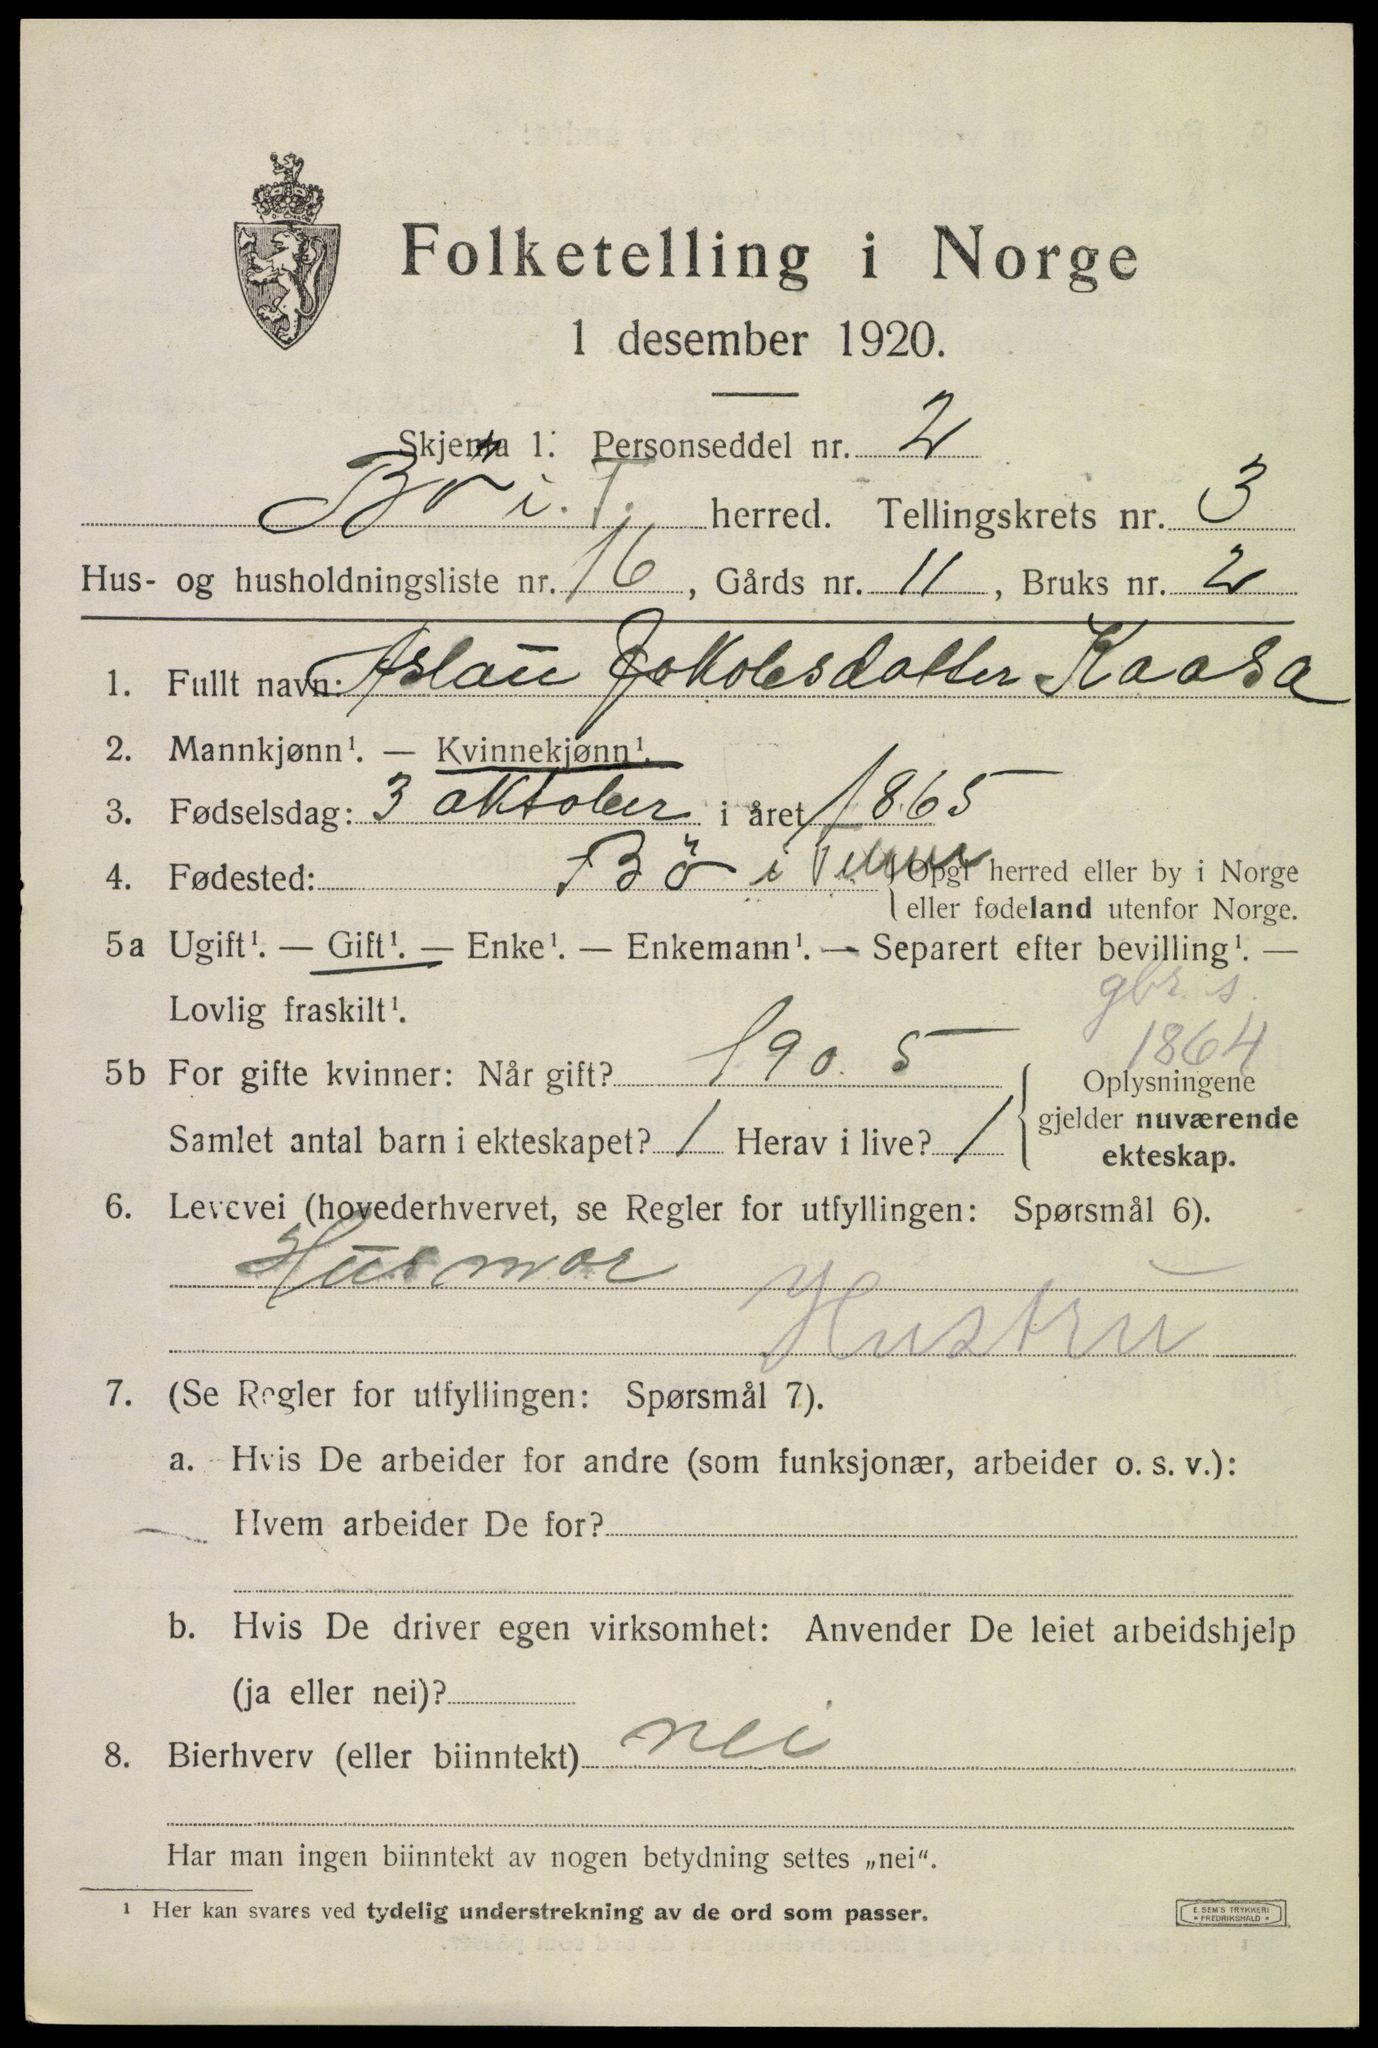 Folketelling i Norge
1 desember 1920.
Skjema 1. Personseddel nr. 2
Bö i. T. herred. Tellingskrets nr. 3
Hus- og husholdningsliste nr. 16, Gårds nr. 11, Bruks nr. 2
1. Fullt navn: Aslaŭ Jakobsdatter Kaasa
2. Mannkjønn¹. — Kvinnekjønn¹.
3. Fødselsdag: 3 oktober i året 1865
4. Fødested: Bö i Telem { Opgi herred eller by i Norge
eller fødeland utenfor Norge.
5a Ugift¹. — Gift¹. — Enke¹. — Enkemann¹. — Separert efter bevilling¹. —
Lovlig fraskilt¹.
gbr. s.
1864
5b For gifte kvinner: Når gift? 1905 { Oplysningene
Samlet antal barn i ekteskapet? 1 Herav i live? 1 gjelder nuværende
ekteskap.
6. Levevei (hovederhvervet, se Regler for utfyllingen: Spørsmål 6).
Hŭsmor
Hustrŭ
7. (Se Regler for utfyllingen: Spørsmål 7).
a. Hvis De arbeider for andre (som funksjonær, arbeider o. s. v.):
Hvem arbeider De for?
b. Hvis De driver egen virksomhet: Anvender De leiet arbeidshjelp
(ja eller nei)?
8. Bierhverv (eller biinntekt) nei
Har man ingen biinntekt av nogen betydning settes „nei“.
¹ Her kan svares ved tydelig understrekning av de ord som passer.
E. SEM'S TRYKKERI
* FREDRIKSHALD *